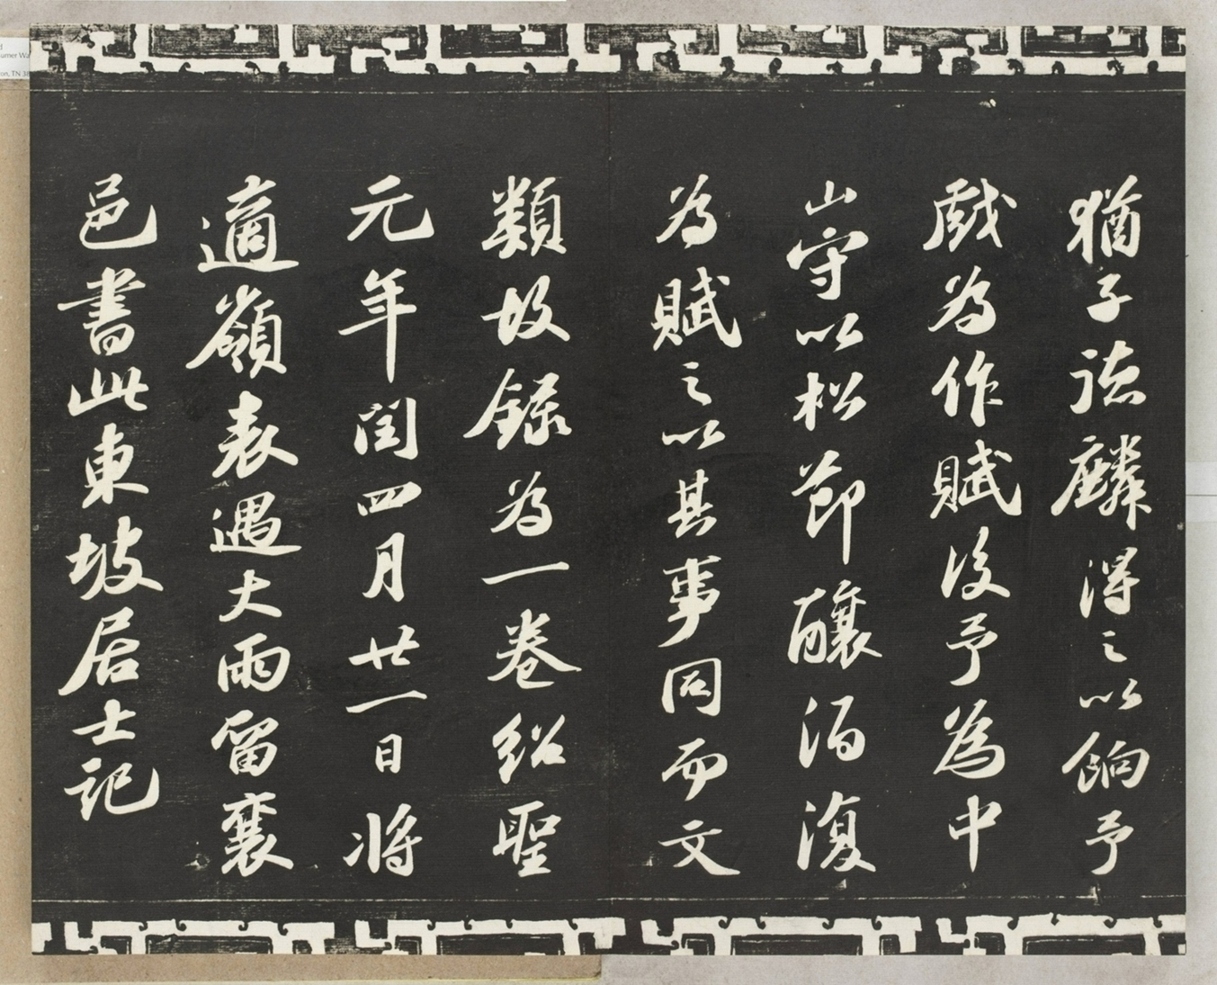 猶子德麟得之以餉予
戲為作賦後予為中
山守以松節釀酒復
為賦之以其事同而文
類故錄為一卷紹聖
元年閏四月廿一日將
適嶺表遇大雨留襄
邑書此東坡居士記